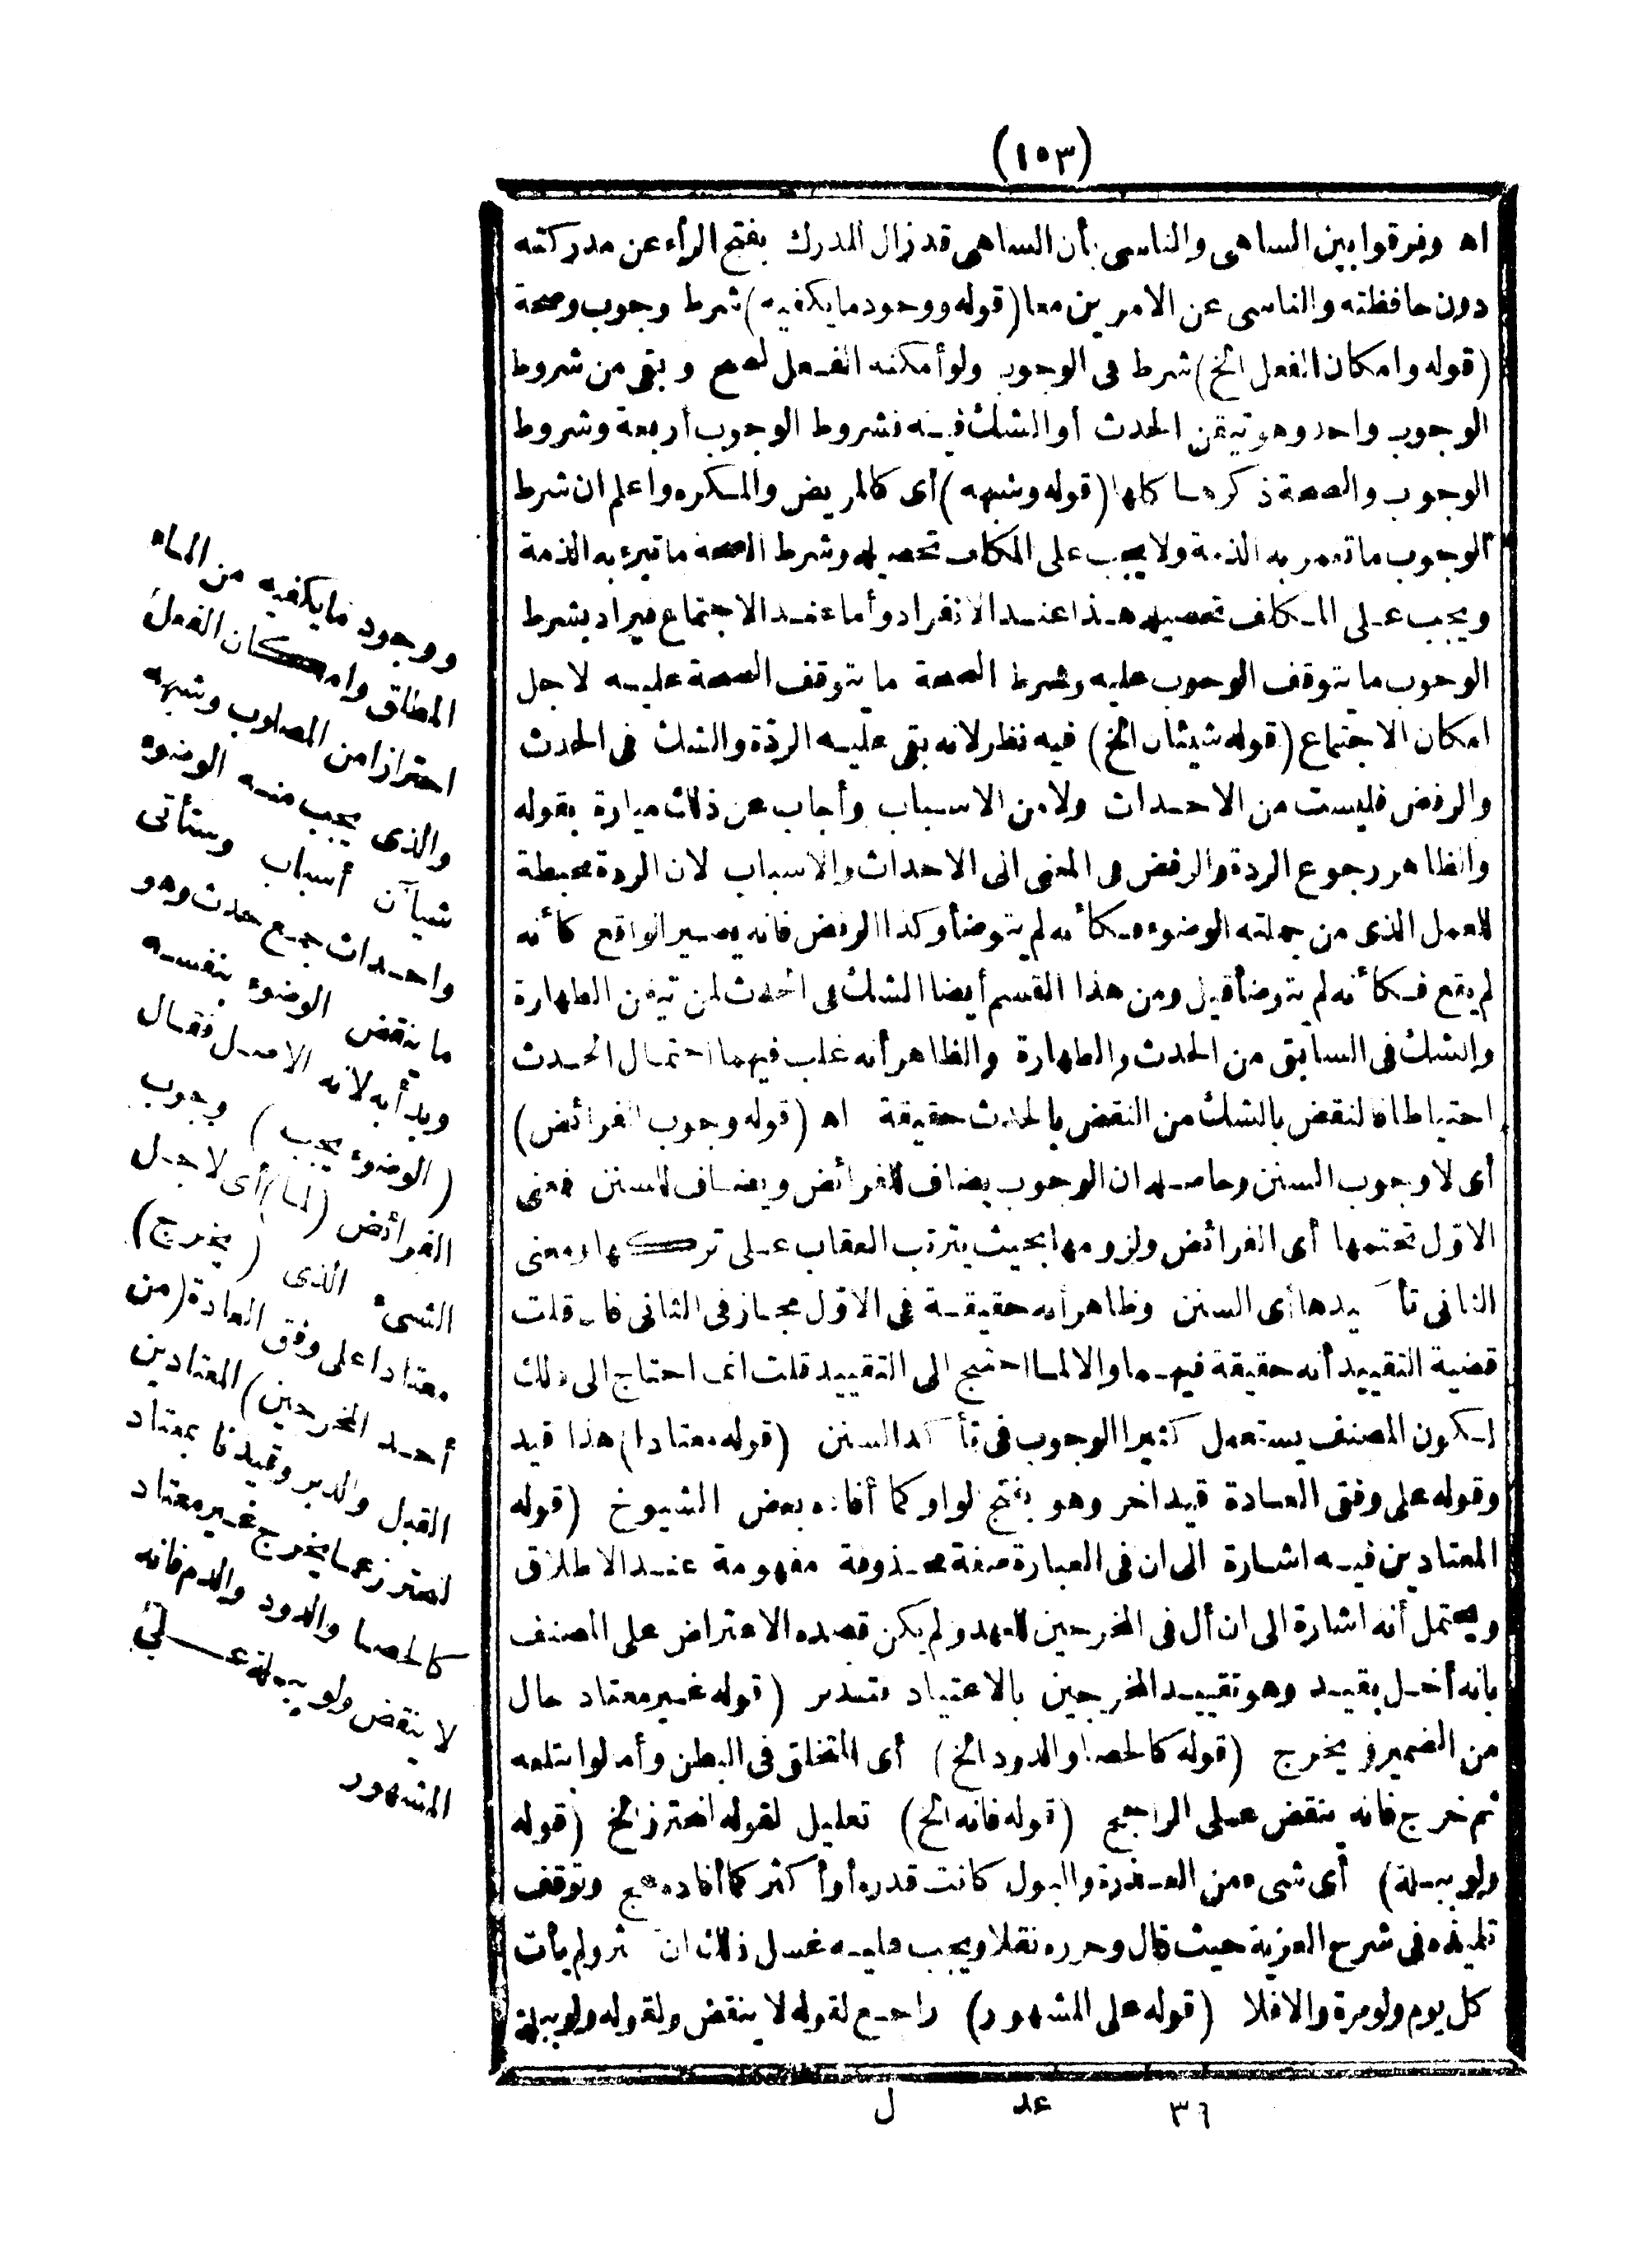 (١٥٣)
اه وفرقوا بين الساهى والناسى بأن الساهى قد زال المدرك بفتح الراء عن مدركته
دون حافظته والناسى عن الامرين معا (قوله ووجود ما يكفيه) شرط وجوب وصحة
(قوله وامكان الفعل الخ) شرط فى الوجوب ولو أمكنه الفعل لصح وبقى من شروط
الوجوب واحد وهو تيقن الحدث أو الشك فيه فشروط الوجوب أربعة وشروط
الوجوب والصحة ذكرها كلها (قوله وشبهه) أى كالمريض والمكره واعلم ان شرط
الوجوب ما تعمر به الذمة ولا يجب على المكلف تحصيله وشرط الصحة ما تبرئ به الذمة
ويجب على المكلف تحصيله هذا عند الانفراد وأما عند الاجتماع فيراد بشرط
الوجوب ما يتوقف الوجوب عليه وشرط الصحة ما يتوقف الصحة عليه لاجل
امكان الاجتماع (قوله شيئان الخ) فيه نظر لانه بقى عليه الردة والشك فى الحدث
والرفض فليست من الاحداث ولا من الاسباب وأجاب عن ذلك ميارة بقوله
والظاهر رجوع الردة والرفض فى المعنى الى الاحداث والاسباب لان الردة محبطة
للعمل الذى من جملته الوضوء فكأنه لم يتوضأ وكذا الرفض فانه يصير الواقع كأنه
لم يقع فكأنه لم يتوضأ قيل ومن هذا القسم أيضا الشك فى الحدث لمن تيقن الطهارة
والشك فى السابق من الحدث والطهارة والظاهر أنه غلب فيهما احتمال الحدث
احتياطا فالنقض بالشك من النقض بالحدث حقيقة اه (قوله وجوب الفرائض)
أى لا وجوب السنن وحاصله ان الوجوب يضاف للفرائض ويضاف للسنن فمعنى
الاول تحتمها أى الفرائض ولزومها بحيث يترتب العقاب على تركها ومعنى
الثانى تأكيدها أى السنن وظاهر أنه حقيقة فى الاول مجاز فى الثانى فان قلت
قضية التقييد أنه حقيقة فيهما والا لما احتيج الى التقييد قلت انما احتاج الى ذلك
لكون المصنف يستعمل كثيرا الوجوب فى تأكد السنن (قوله معتادا) هذا قيد
وقوله على وفق العادة قيد اخر وهو بفتح الواو كما أفاده بعض الشيوخ (قوله
المعتادين فيه اشارة الى ان فى العبارة صفة محذوفة مفهومة عند الاطلاق
ويحتمل أنه اشارة الى ان أل فى المخرجين للعهد ولم يكن قصده الاعتراض على المصنف
بانه أخل بقيد وهو تقييد المخرجين بالاعتياد فتدبر (قوله غير معتاد حال
من الضمير فى يخرج (قوله كالحصا والدود الخ) أى المتخلق فى البطن وأما لو ابتلعه
ثم خرج فانه ينقض على الراجح (قوله فانه الخ) تعليل لقوله احترز الخ (قوله
ولو ببلة) أى شىء من العذرة والبول كانت قدره أو أكثر كما أفاده عج وتوقف
تلميذه فى شرح العزية حيث قال وحرره نقلا ويجب عليه غسل ذلك ان كثر ولم يأت
كل يوم ولو مرة والا فلا (قوله على المشهور) راجع لقوله لا ينقض ولقوله ولو ببلة
٣٦ عد ل
ووجود ما يكفيه من الماء
المطلق وامكان الفعل
احترازا من المصلوب وشبهه
والذى يجب منه الوضوء
شيآن أسباب وستأتى
واحداث جمع حدث وهو
ما ينقض الوضوء بنفسه
وبدأ به لانه الاصل فقال
(الوضوء يجب) وجوب
الفرائض (لما) أى لاجل
الشىء الذى (يخرج)
معتادا على وفق العادة (من
أحد المخرجين) المعتادين
القبل والدبر وقيدنا بمعتاد
احترز عما يخرج غير معتاد
كالحصا والدود والدم فانه
لا ينقض ولو ببلة على
المشهور